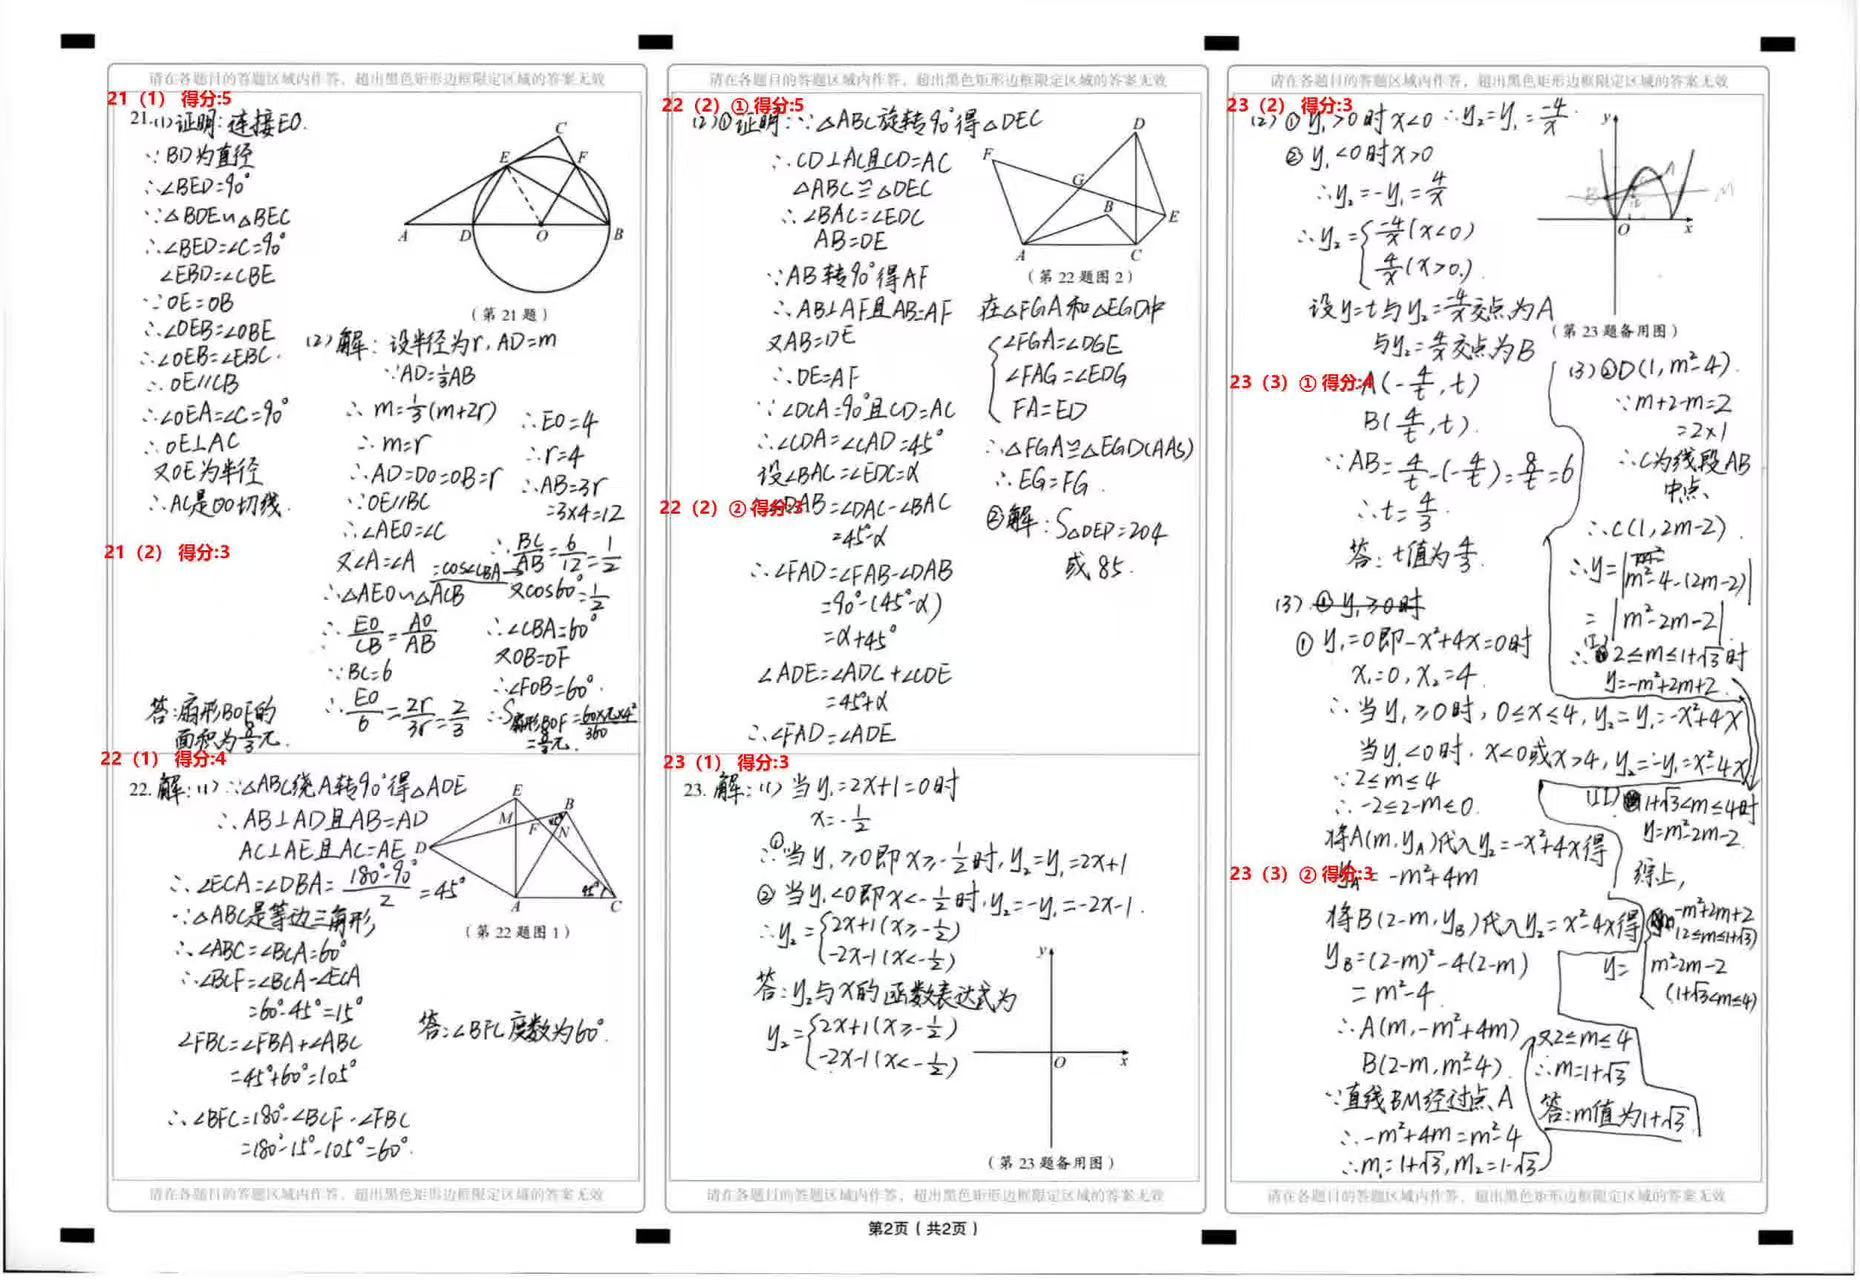 请在各题目的答题区域内作答，超出黑色矩形边框限定区域的答案无效
21（1） 得分:5
21.(1)证明: 连接EO.
∵BD为直径
∴∠BED=90°
∵△BDE∽△BEC
∴∠BED=∠C=90°
∠EBD=∠CBE
∵OE=OB
∴∠OEB=∠OBE
∴∠OEB=∠EBC.
∴OE//CB
∴∠OEA=∠C=90°
∴OE⊥AC
又OE为半径
∴AC是⊙O切线.
C
E
F
A
D
O
B
（第 21 题）
21（2） 得分:3
(2)解: 设半径为r, AD=m
∵AD=1/3AB
∴m=1/3(m+2r)
∴m=r
∴AD=DO=OB=r
∵OE//BC
∴∠AEO=∠C
又∠A=∠A
∴△AEO∽△ACB
∴EO/CB=AO/AB
∵BC=6
∴EO/6=2r/3r=2/3
∴EO=4
∴r=4
∴AB=3r
=3×4=12
∴BC/AB=6/12=1/2
=cos∠CBA
又cos60°=1/2
∴∠CBA=60°
又OB=OF
∴∠FOB=60°.
∴S扇形BOF=60×π×4²/360
=8/3π.
答:扇形BOF的
面积为8/3π.
22（1） 得分:4
22.解:(1)∵△ABC绕A转90°得△ADE
∴AB⊥AD且AB=AD
AC⊥AE且AC=AE
∴∠ECA=∠DBA=(180°-90°)/2=45°
∵△ABC是等边三角形,
∴∠ABC=∠BCA=60°
∴∠BCF=∠BCA-∠ECA
=60°-45°=15°
∠FBC=∠FBA+∠ABC
=45°+60°=105°
∴∠BFC=180°-∠BCF-∠FBC
=180°-15°-105°=60°.
答:∠BFC度数为60°.
E
B
M
F
N
D
45°
A
C
（第 22 题图 1）
请在各题目的答题区域内作答，超出黑色矩形边框限定区域的答案无效
请在各题目的答题区域内作答，超出黑色矩形边框限定区域的答案无效
22（2）① 得分:5
(2)①证明:∵△ABC旋转90°得△DEC
∴CD⊥AC且CD=AC
△ABC≌△DEC
∴∠BAC=∠EDC
AB=DE
∵AB转90°得AF
∴AB⊥AF且AB=AF
又AB=DE
∴DE=AF
∵∠DCA=90°且CD=AC
∴∠CDA=∠CAD=45°
设∠BAC=∠EDC=α
22（2）② 得分:3
∴∠DAB=∠DAC-∠BAC
=45°-α
∴∠FAD=∠FAB-∠DAB
=90°-(45°-α)
=α+45°
∠ADE=∠ADC+∠CDE
=45°+α
∴∠FAD=∠ADE
D
F
G
B
E
A
C
（第 22 题图 2）
在△FGA和△EGD中
∠FGA=∠DGE
∠FAG=∠EDG
FA=ED
∴△FGA≌△EGD(AAS)
∴EG=FG.
②解:S△DEP=204
或85.
23（1） 得分:3
23.解:(1)当y₁=2x+1=0时
x=-1/2
∴①当y₁≥0即x≥-1/2时,y₂=y₁=2x+1
②当y₁<0即x<-1/2时,y₂=-y₁=-2x-1.
∴y₂={2x+1(x≥-1/2)
-2x-1(x<-1/2)
答:y₂与x的函数表达式为
y₂={2x+1(x≥-1/2)
-2x-1(x<-1/2)
y
O
x
（第 23 题备用图）
请在各题目的答题区域内作答，超出黑色矩形边框限定区域的答案无效
第2页（共2页）
请在各题目的答题区域内作答，超出黑色矩形边框限定区域的答案无效
23（2） 得分:3
(2)①y₁>0时x<0 ∴y₂=y₁=-4/x.
②y₁<0时x>0
∴y₂=-y₁=4/x
∴y₂={-4/x(x<0)
4/x(x>0).
设y=t与y₂=-4/x交点为A
与y₂=4/x交点为B
23（3）① 得分:4
A(-4/t,t)
B(4/t,t).
∵AB=4/t-(-4/t)=8/t=6
∴t=4/3.
答:t值为4/3.
y
A
B
M
O
x
（第 23 题备用图）
(3)①y₁≥0时
①y₁=0即-x²+4x=0时
x₁=0,x₂=4.
∴当y₁≥0时,0≤x≤4,y₂=y₁=-x²+4x
当y₁<0时.x<0或x>4,y₂=-y₁=x²-4x
∵2≤m≤4
∴-2≤2-m≤0.
将A(m,yA)代入y₂=-x²+4x得
23（3）② 得分:3
yA=-m²+4m
将B(2-m,yB)代入y₂=x²-4x得
yB=(2-m)²-4(2-m)
=m²-4.
∴A(m,-m²+4m)
B(2-m,m²-4).
∵直线BM经过点A
∴-m²+4m=m²-4
∴m₁=1+√3,m₂=1-√3
又2≤m≤4
∴m=1+√3
答:m值为1+√3.
(3)②D(1,m²-4).
∵m+2-m=2
=2×1
∴C为线段AB
中点
∴C(1,2m-2).
∴y=|m²-4-(2m-2)|
=|m²-2m-2|
(I)
∴2≤m≤1+√3时
y=-m²+2m+2.
(II)1+√3<m≤4时
y=m²-2m-2.
综上,
y={-m²+2m+2
(2≤m≤1+√3)
m²-2m-2
(1+√3<m≤4)
请在各题目的答题区域内作答，超出黑色矩形边框限定区域的答案无效